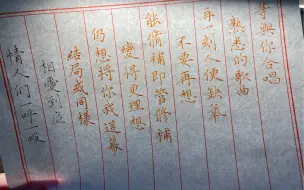 與你合唱
熟悉的歌曲
刻人便缺氧
不要再想
能補即管修補
變得更理想
仍想將你我這幕
結局或同樣
相愛到
情人們一呼一吸